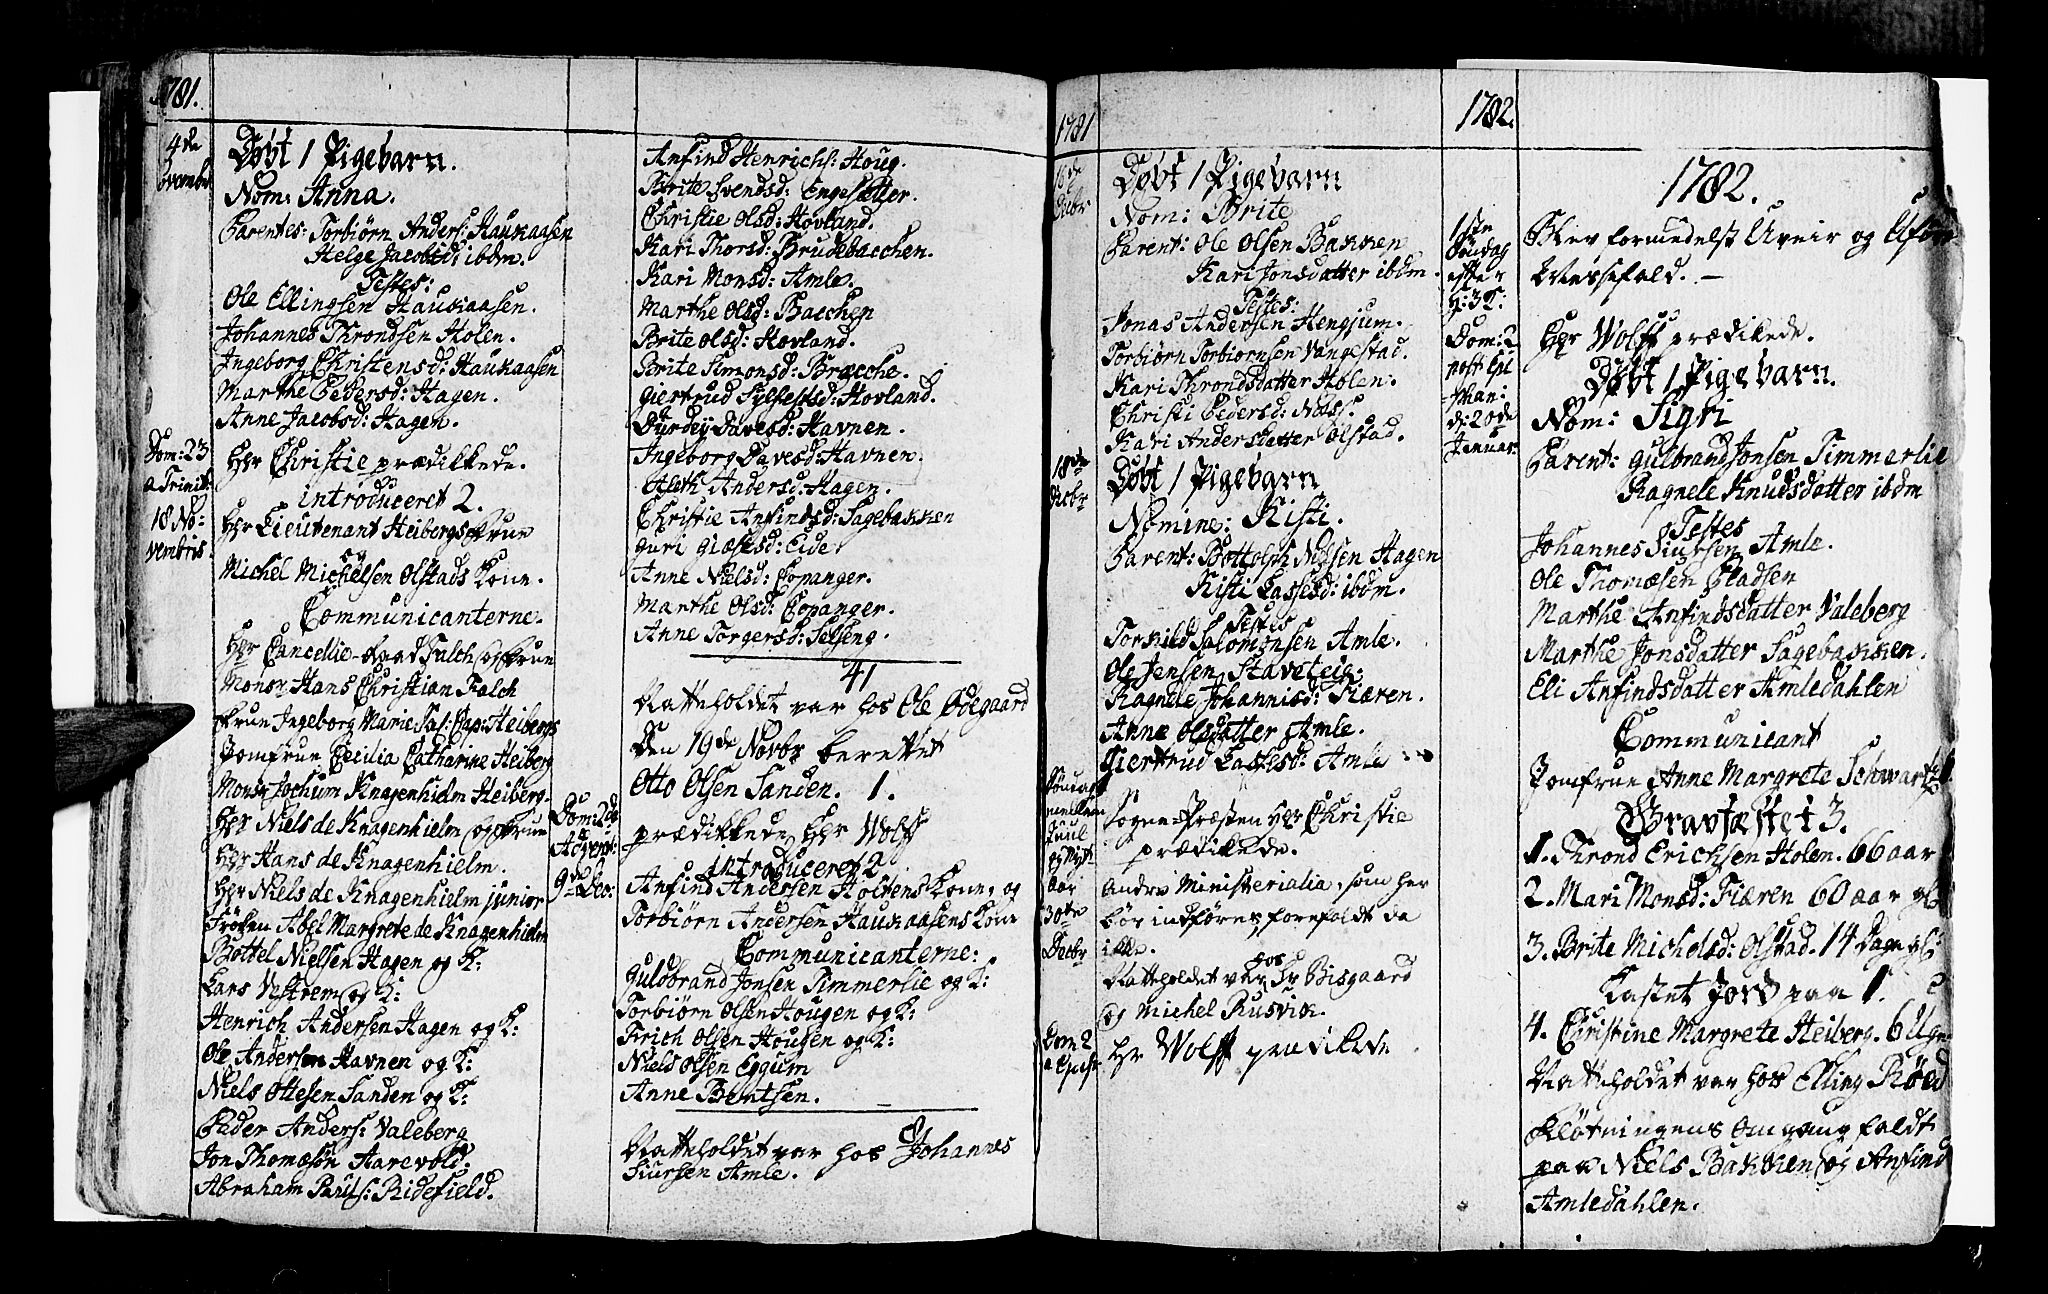 1781.
4de
Døbt 1 Pigebarn.
Nom: Anna.
Parentes: Torbiörn Anders: Haukaasen
Helge Jacobsd: ibdm.
Testes:
Ole Ellingsen Haukaasen.
Johannes Throndsen Holen.
Ingeborg Christensd: Haukaasen
Marthe Pedersd: Hagen.
Anne Jacobsd: Hagen.
Dom: 23
a Trinit:
18 No-
vembris.
Hr Christie prædikkede.
introduceret 2.
Hr Lieutenant Heibergs Frue
og
Michel Michelsen Olstads Kone.
Communicanterne.
Hr Cancellie-Raad Falch og Frue
Monsr Hans Christian Falch
Frue Ingeborg Marie Sal: Cap: Heibergs
Jomfrue Cecilia Catharine Heiberg
Monsr Jochum Knagenhielm Heiberg.
Hr Niels de Knagenhielm og Frue
Hr Hans de Knagenhielm.
Hr Niels de Knagenhielm junior
Frøken Abel Margrete de Knagenhielm
Bottel Nielsen Hagen og K:
Lars Nystrem og K:
Henrich Andersen Hagen og K:
Ole Andersen Havnen og K:
Niels Ottesen Sanden og K:
Peder Anders: Valeberg
Jon Thomæsøn Aarevold:
Abraham Pouls: Ridefield.
Anfind Henrichs: Houg.
Brite Svendsd: Engesetter.
Christie Olsd: Hovland.
Kari Thorsd: Brudebacchen.
Kari Monsd: Amle.
Marthe Olsd: Bacchen
Brite Olsd: Hovland.
Brite Simonsd: Bracche.
Giertrud Sylfestsd: Hovland.
Durdey Davesd: Havnen.
Ingeborg Davesd: Havnen.
Aleth Andersd: Hagen.
Christie Anfindsd: Sagebakken
Guri Giæsesd: Eide
Anne Nielsd: Copanger.
Marthe Olsd: Copanger.
Anne Torgersd: Selseng.
41
Natteholdet var hos Ole Ødegaard
Den 19de Novbr berettet
Otto Olsen Sanden. 1.
Dom: 2de
Advent:
9de Dec:
prædikkede Hr Wolff
introduceret 2
Anfind Andersen Holtens Kone, og
Torbiörn Andersen Haukaasens Kone
Communicanterne:
Guldbrand Jonsen Timmerlie og K:
Torbiörn Olsen Hougen og K:
Erich Olsen Hougen og K:
Niels Olsen Eggum
Anne Bentsen.
8
Natteholdet var hos Johannes
Siursen Amle.
1781
16de
Decbr
Døbt 1 Pigebarn
Nom: Brite
Parent: Ole Olsen Bakken
Kari Jonsdatter ibdm.
Testes:
Jonas Andersen Hengjum.
Torbiørn Torbiørnsen Vangestad.
Kari Throndsdatter Holen.
Christi Pedersd: Næss.
Kari Andersdatter Olstad.
18de
Decbr
Døbt 1 Pigebarn
Nomine: Kisti.
Parent: Bottolph Nilsen Hagen
Kisti Lassesd: ibdm.
Testes
Torkild Salomonsen Amle.
Ole Jensen Staveteig.
Ragnele Johannisd: Fiæren.
Anne Olsdatter Amle.
Giertrud Lassesd: Amle
Søndag
mellem
Juul
og Nyt-
aar
30te
Decbr
Sogne-Præsten Hr Christie
prædikede.
Andre Ministerialia, som her
bør indføres, forefaldt da
ikke.
Natteholdet var hos Hr Bisgaard
og Michel Rusvik.
Dom 2
Hr Wolff prædikede
1782.
1ste
Søndag
efter
H: 3 K:
1782.
Blev formedelst Uveir og Uføre
Messefald. —
Dom: 2
post Epi
phani
d: 20de
Januar.
Hr Wolff prædikede.
Døbt 1 Pigebarn.
Nom: Sigri
Parent: Gulbrand Jonsen Timmerlie
Ragnele Knudsdatter ibdm
Testes
Johannes Siursen Amle.
Ole Thomæsen Pladsen
Marthe Anfindsdatter Valeberg
Marthe Jonsdatter Sagebakken.
Eli Anfindsdatter Amledahlen
Communicant
Jomfrue Anne Margrete Schwartz 1.
Gravfæstet 3.
1. Thrond Erichsen Holen. 66 aar
2. Mari Monsd: Fiæren 60 aar gl:
3. Brite Michelsd: Olstad. 14 Dage gl:
Kastet Jord paa 1.
4. Christine Margrete Heiberg. 6 Uger
Natteholdet var hos Elling Røed
Fløtningens Omgang faldt
paa Niels Bakken og Anfind
Amledahlen.